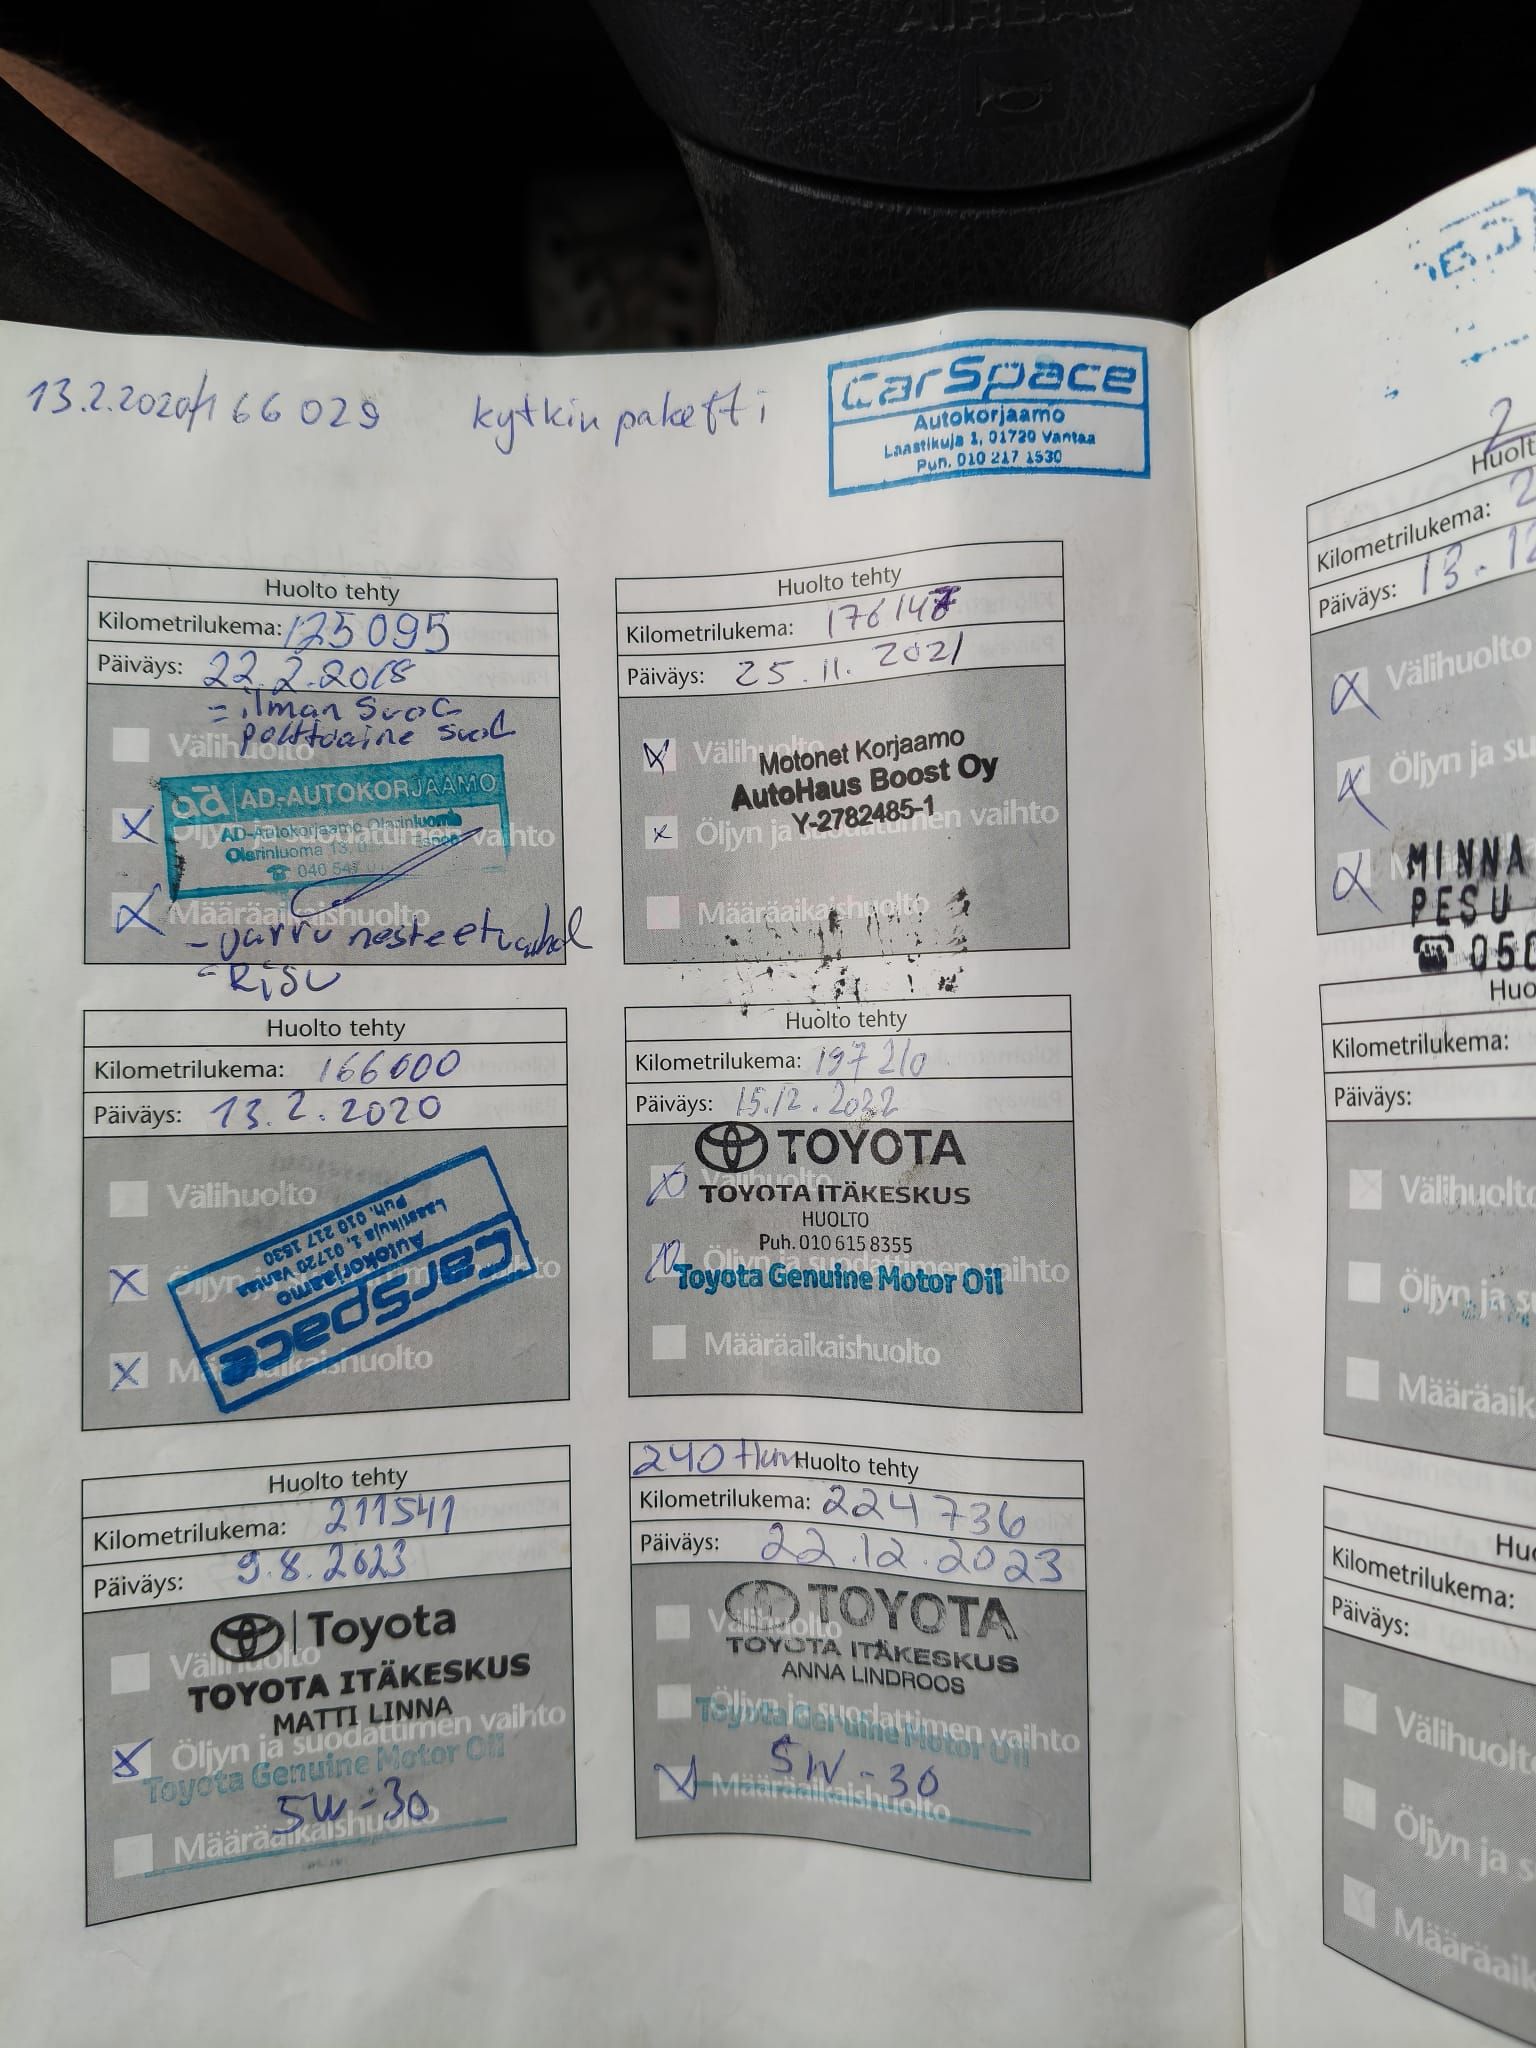 AIRBAG
13.2.2020/166 029 kytkin paketti
CarSpace
Autokorjaamo
Laastikuja 1, 01720 Vantaa
Puh. 010 217 1530
Huolto tehty
Kilometrilukema: 125095
Päiväys: 22.2.2018
= ilman suod
polttoaine suod
Välihuolto
ad AD-AUTOKORJAAMO
AD-Autokorjaamo Olarinluoma
Olarinluoma 13,
Espoo
040 547
Öljyn ja suodattimen vaihto
Määräaikaishuolto
- jarru nesteet vaihd
Huolto tehty
Kilometrilukema: 176147
Päiväys: 25.11.2021
Välihuolto
Motonet Korjaamo
AutoHaus Boost Oy
Y-2782485-1
Öljyn ja suodattimen vaihto
Määräaikaishuolto
Huolto tehty
Kilometrilukema: 166000
Päiväys: 13.2.2020
Välihuolto
Öljyn ja suodattimen vaihto
Määräaikaishuolto
CarSpace
Autokorjaamo
Laastikuja 1, 01720 Vantaa
Puh. 010 217 1530
Huolto tehty
Kilometrilukema: 197210
Päiväys: 15.12.2022
TOYOTA
Välihuolto
TOYOTA ITÄKESKUS
HUOLTO
Puh. 010 615 8355
Öljyn ja suodattimen vaihto
Toyota Genuine Motor Oil
Määräaikaishuolto
Huolto tehty
Kilometrilukema: 211541
Päiväys: 9.8.2023
Toyota
Välihuolto
TOYOTA ITÄKESKUS
MATTI LINNA
Öljyn ja suodattimen vaihto
Toyota Genuine Motor Oil
5W-30
Määräaikaishuolto
240 tkm Huolto tehty
Kilometrilukema: 224736
Päiväys: 22.12.2023
TOYOTA
Välihuolto
TOYOTA ITÄKESKUS
ANNA LINDROOS
Öljyn ja suodattimen vaihto
Toyota Genuine Motor Oil
5W-30
Määräaikaishuolto
Huolt
Kilometrilukema: 2
Päiväys: 13.12
Välihuolto
Öljyn ja su
MINNA
PESU
050
Huo
Kilometrilukema:
Päiväys:
Välihuolto
Öljyn ja s
Määräaik
Huo
Kilometrilukema:
Päiväys:
Välihuolt
Öljyn ja s
Määräaik